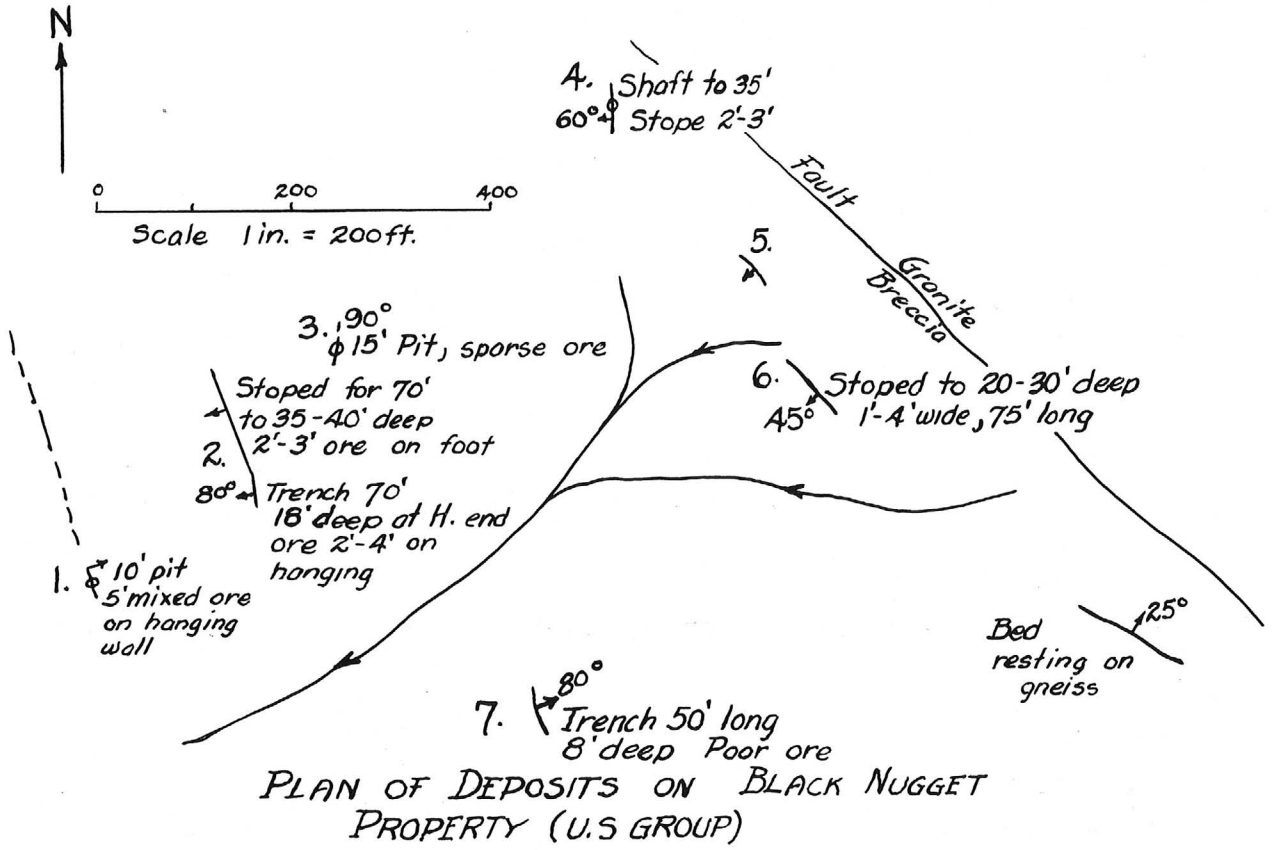 N
0 200 400
Scale 1 in. = 200 ft.
4. Shaft to 35'
60° Stope 2'-3'
Fault
Granite
Breccia
5.
3. 90°
15' Pit, sparse ore
Stoped for 70'
to 35-40' deep
2'-3' ore on foot
2.
80° Trench 70'
18' deep at H. end
ore 2'-4' on
hanging
6. Stoped to 20-30' deep
45° 1'-4' wide, 75' long
1. 10' pit
5' mixed ore
on hanging
wall
25°
Bed
resting on
gneiss
7. 80°
Trench 50' long
8' deep Poor ore
PLAN OF DEPOSITS ON BLACK NUGGET
PROPERTY (U.S GROUP)